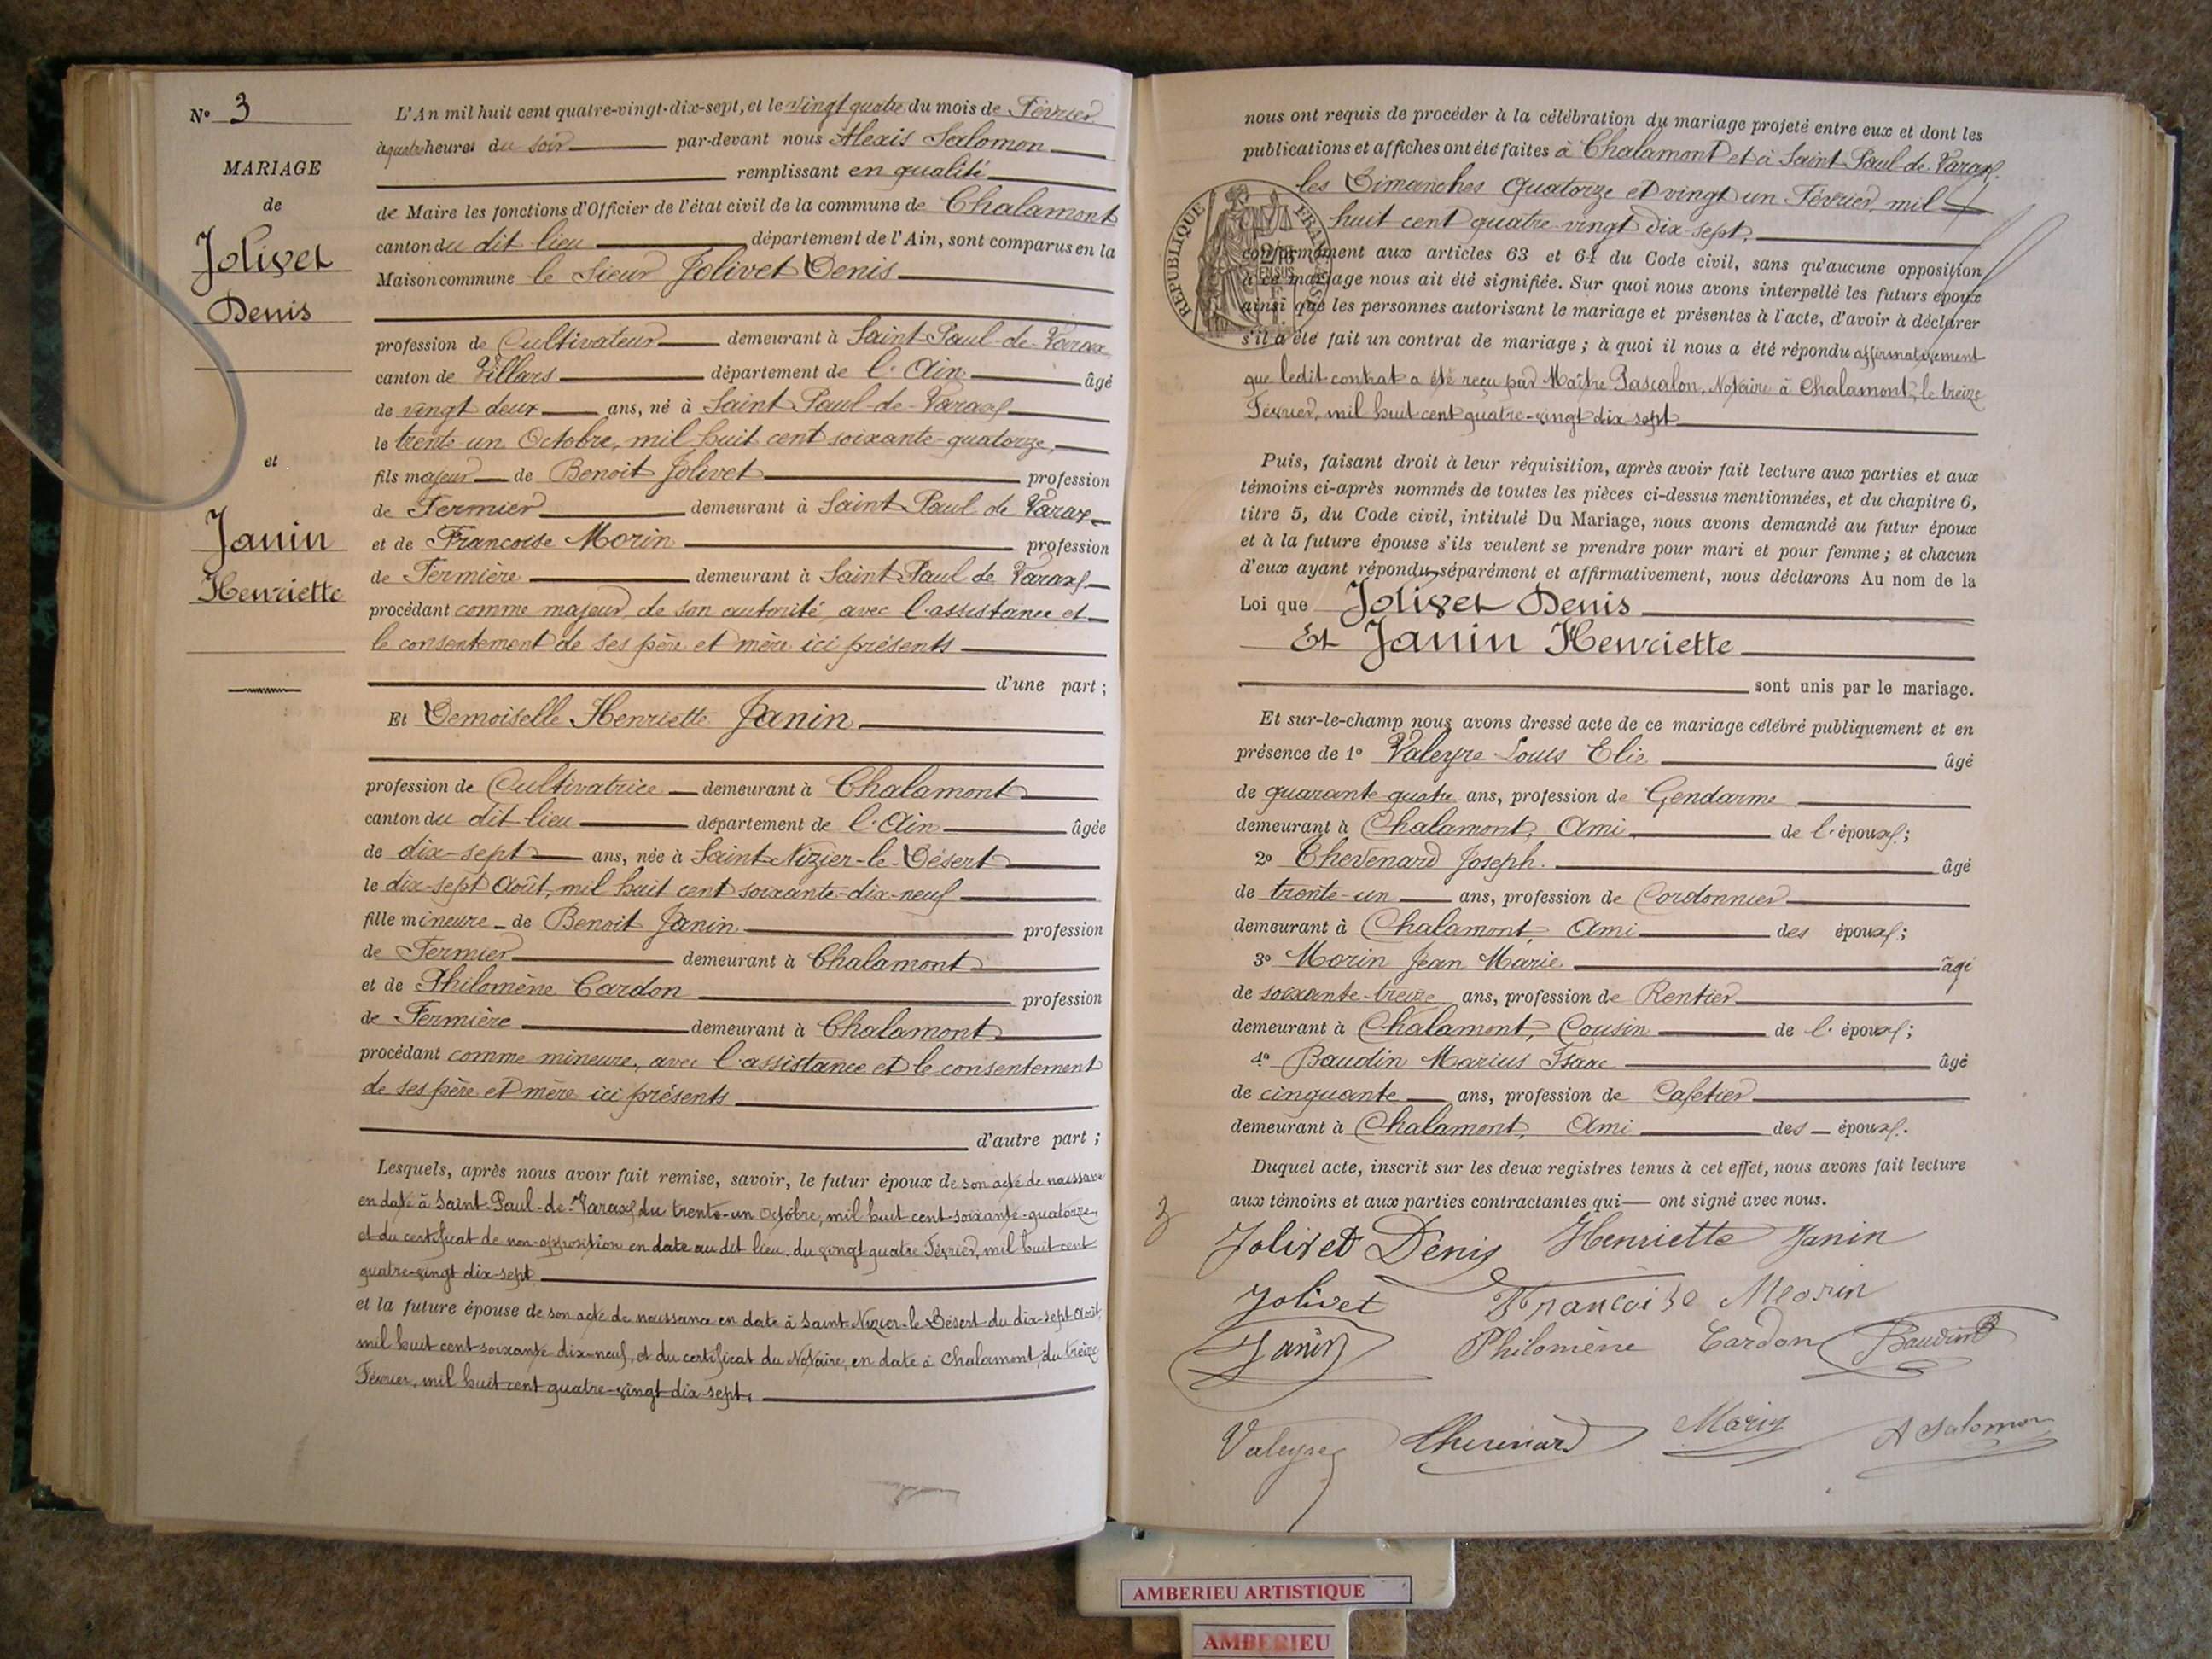 N° 3
MARIAGE
de
Jolivet
Denis
et
Janin
Henriette
L'An mil huit cent quatre-vingt-dix-sept, et le vingt quatre du mois de Février
à quatre heures du soir par-devant nous Alexis Salomon
remplissant en qualité
de Maire les fonctions d'Officier de l'état civil de la commune de Chalamont
canton du dit lieu département de l'Ain, sont comparus en la
Maison commune le Sieur Jolivet Denis
profession de Cultivateur demeurant à Saint-Paul-de-Varax
canton de Villars département de l'Ain âgé
de vingt deux ans, né à Saint Paul-de-Varax
le trente un Octobre, mil huit cent soixante-quatorze,
fils majeur de Benoit Jolivet profession
de Fermier demeurant à Saint Paul de Varax
et de Francoise Morin profession
de Fermière demeurant à Saint Paul de Varax
procédant comme majeur, de son autorité, avec l'assistance et
le consentement de ses père et mère ici présents
d'une part ;
Et Demoiselle Henriette Janin
profession de Cultivatrice demeurant à Chalamont
canton du dit lieu département de l'Ain âgée
de dix-sept ans, née à Saint-Nizier-le-Désert
le dix-sept Août, mil huit cent soixante-dix-neuf
fille mineure de Benoit Janin profession
de Fermier demeurant à Chalamont
et de Philomène Cardon profession
de Fermière demeurant à Chalamont
procédant comme mineure, avec l'assistance et le consentement
de ses père et mère ici présents
d'autre part ;
Lesquels, après nous avoir fait remise, savoir, le futur époux de son acte de naissance
en date à Saint-Paul-de-Varax du trente-un Octobre, mil huit cent soixante-quatorze,
et du certificat de non-opposition en date au dit lieu, du vingt quatre Février, mil huit cent
quatre-vingt dix-sept.
et la future épouse de son acte de naissance en date à Saint-Nizier-le-Désert du dix-sept Août,
mil huit cent soixante dix-neuf, et du certificat du Notaire, en date à Chalamont, du treize
Février, mil huit cent quatre-vingt dix-sept,
nous ont requis de procéder à la célébration du mariage projeté entre eux et dont les
publications et affiches ont été faites à Chalamont et à Saint-Paul-de-Varax,
les Dimanches Quatorze et vingt un Février, mil
huit cent quatre-vingt dix-sept,
RÉPUBLIQUE FRANÇAISE
conformément aux articles 63 et 64 du Code civil, sans qu'aucune opposition
à ce mariage nous ait été signifiée. Sur quoi nous avons interpellé les futurs époux
ainsi que les personnes autorisant le mariage et présentes à l'acte, d'avoir à déclarer
s'il a été fait un contrat de mariage ; à quoi il nous a été répondu affirmativement
que ledit contrat a été reçu par Maître Pascalon, Notaire à Chalamont, le treize
Février, mil huit cent quatre-vingt dix sept
Puis, faisant droit à leur réquisition, après avoir fait lecture aux parties et aux
témoins ci-après nommés de toutes les pièces ci-dessus mentionnées, et du chapitre 6,
titre 5, du Code civil, intitulé Du Mariage, nous avons demandé au futur époux
et à la future épouse s'ils veulent se prendre pour mari et pour femme ; et chacun
d'eux ayant répondu séparément et affirmativement, nous déclarons Au nom de la
Loi que Jolivet Denis
Et Janin Henriette
sont unis par le mariage.
Et sur-le-champ nous avons dressé acte de ce mariage célébré publiquement et en
présence de 1° Valeyre Louis Elie âgé
de quarante quatre ans, profession de Gendarme
demeurant à Chalamont, Ami de l'époux ;
2° Chevenard Joseph. âgé
de trente-un ans, profession de Cordonnier
demeurant à Chalamont, Ami des époux ;
3° Morin Jean Marie âgé
de soixante-treize ans, profession de Rentier
demeurant à Chalamont, Cousin de l'époux ;
4° Baudin Marius Isaac âgé
de cinquante ans, profession de Cafetier
demeurant à Chalamont, Ami des époux.
Duquel acte, inscrit sur les deux registres tenus à cet effet, nous avons fait lecture
aux témoins et aux parties contractantes qui ont signé avec nous.
3
Jolivet Denis Henriette Janin
Jolivet Francoise Morin
Janin Philomène Cardon Baudin
Valeyre Chevenard Morin A Salomon
AMBERIEU ARTISTIQUE
AMBERIEU